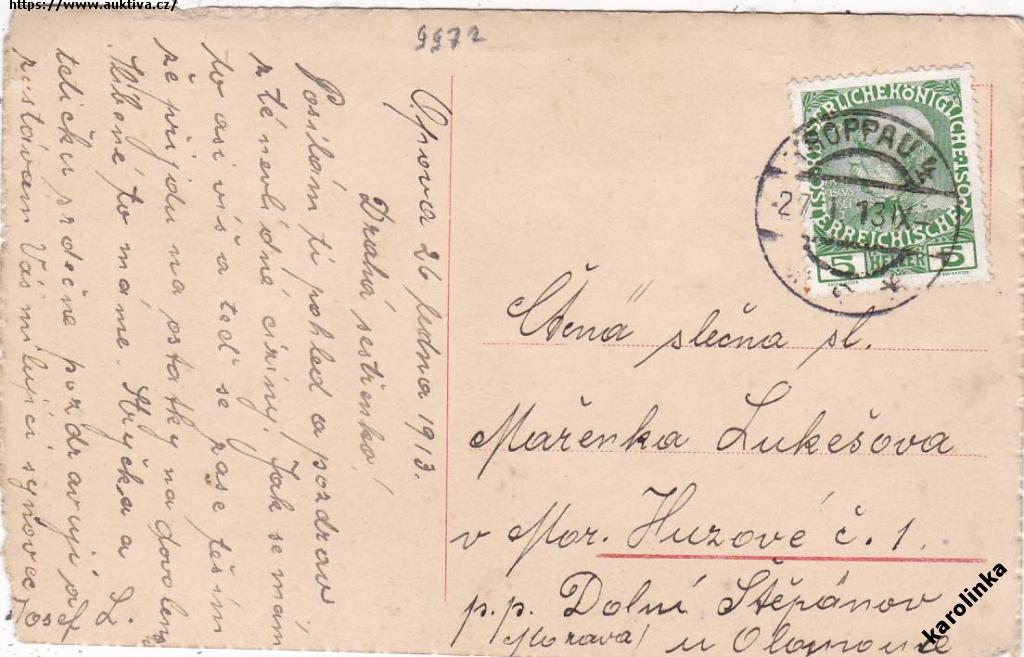 https://www.auktiva.cz/
9972
Opava 26 ledna 1913.
Drahá sestřenko!
Posílám ti pohled a pozdrav
z té nevlídné ciziny. Jak se mám
to asi víš a teď se zase těším
že přijdu na ostatky na dovolenu
slíbené to máme. Strýčka a
tetičku srdečně pozdravuji a
zůstávám Vás milující synovec
Josef L.
TROPPAU 4
27. I. 13 IX
5 HELLER 5
Ctěná slečna sl.
Mařenka Lukešova
v Mor. Huzové č. 1.
p. p. Dolní Štěpánov
(Morava) u Olomouce
karolinka